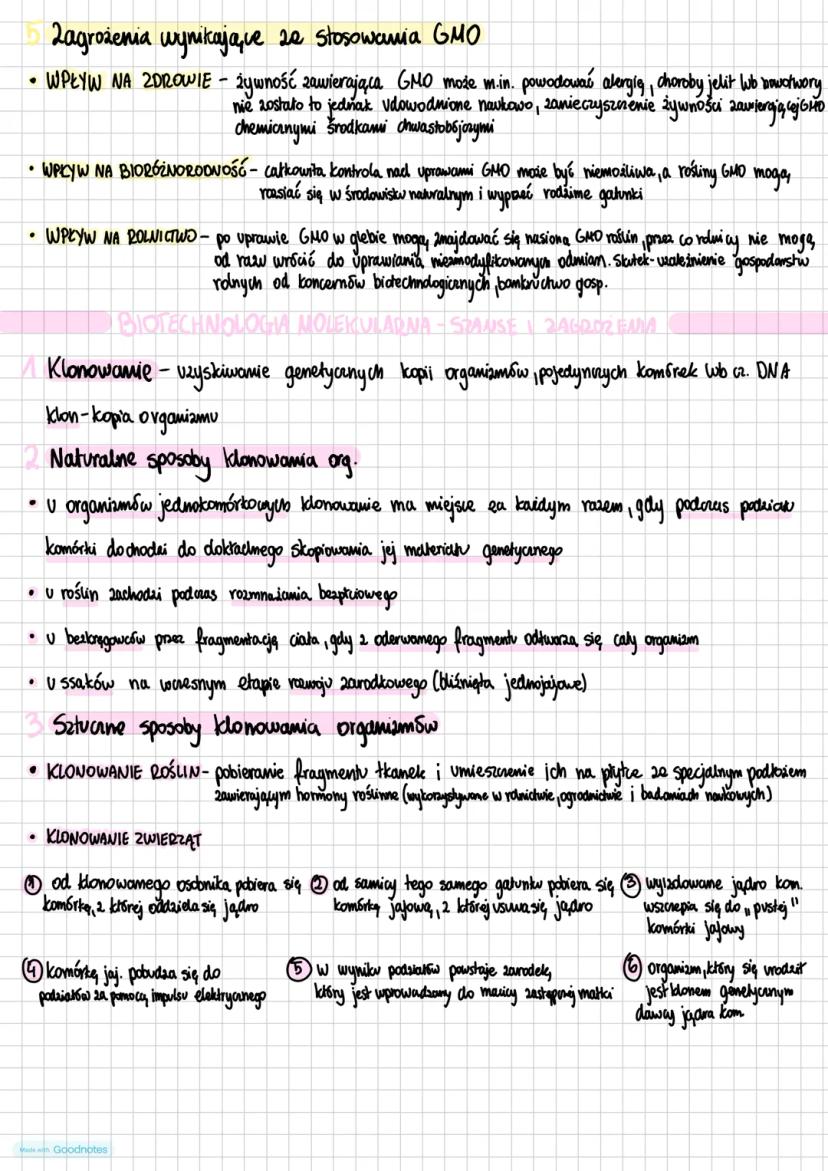 5 Zagrożenia wynikające ze stosowania GMO
• WPŁYW NA ZDROWIE - żywność zawierająca GMO może m.in. powodować alergię, choroby jelit lub nowotwory
nie zostało to jednak udowodnione naukowo, zanieczyszczenie żywności zawierającej GMO
chemicznymi środkami chwastobójczymi
• WPŁYW NA BIORÓŻNORODNOŚĆ - całkowita kontrola nad uprawami GMO może być niemożliwa, a rośliny GMO mogą
rozsiać się w środowisku naturalnym i wyprzeć rodzime gatunki
• WPŁYW NA ROLNICTWO - po uprawie GMO w glebie mogą znajdować się nasiona GMO roślin, przez co rolnicy nie mogą
od razu wrócić do uprawiania niezmodyfikowanych odmian. Skutek - uzależnienie gospodarstw
rolnych od koncernów biotechnologicznych, bankructwo gosp.
BIOTECHNOLOGIA MOLEKULARNA - SZANSE I ZAGROŻENIA
1 Klonowanie - uzyskiwanie genetycznych kopii organizmów, pojedynczych komórek lub cz. DNA
klon - kopia organizmu
2 Naturalne sposoby klonowania org.
• u organizmów jednokomórkowych klonowanie ma miejsce za każdym razem, gdy podczas podziału
komórki dochodzi do dokładnego skopiowania jej materiału genetycznego
• u roślin zachodzi podczas rozmnażania bezpłciowego
• u bezkręgowców przez fragmentację ciała, gdy z oderwanego fragmentu odtwarza się cały organizm
• u ssaków na wczesnym etapie rozwoju zarodkowego (bliźnięta jednojajowe)
3 Sztuczne sposoby klonowania organizmów
• KLONOWANIE ROŚLIN - pobieranie fragmentu tkanek i umieszczenie ich na płytce ze specjalnym podłożem
zawierającym hormony roślinne (wykorzystywane w rolnictwie, ogrodnictwie i badaniach naukowych)
• KLONOWANIE ZWIERZĄT
① od klonowanego osobnika pobiera się
komórkę, z której oddziela się jądro
② od samicy tego samego gatunku pobiera się
komórkę jajową, z której usuwa się jądro
③ wyizolowane jądro kom.
wszczepia się do „pustej"
komórki jajowej
④ komórkę jaj. pobudza się do
podziałów za pomocą impulsu elektrycznego
⑤ w wyniku podziałów powstaje zarodek,
który jest wprowadzany do macicy zastępczej matki
⑥ organizm, który się urodził
jest klonem genetycznym
dawcy jądra kom
Made with Goodnotes